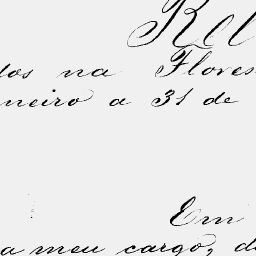 Rel
dos na Flores
neiro a 31 de
Em
a meu cargo, d